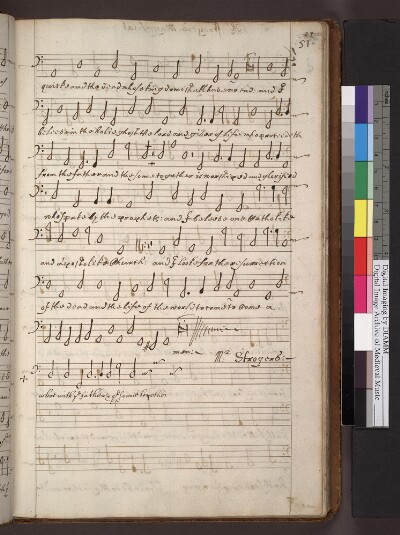 51
quicke and the dead whose kingdome shall have no end: and I
beleeve in the holie ghost the lord and giver of life who proceedeth
from the father and the sonne together is worshiped and glorified
who spake by the prophets: and I beleeve one Catholike
and Apostolike Church and I looke for the resurrection
of the dead and the life of the world to come to come a
men:
Mr Strogers:
who with ye father & ye sonne together
Digital Imaging by DIAMM
Digital Image Archive of Medieval Music